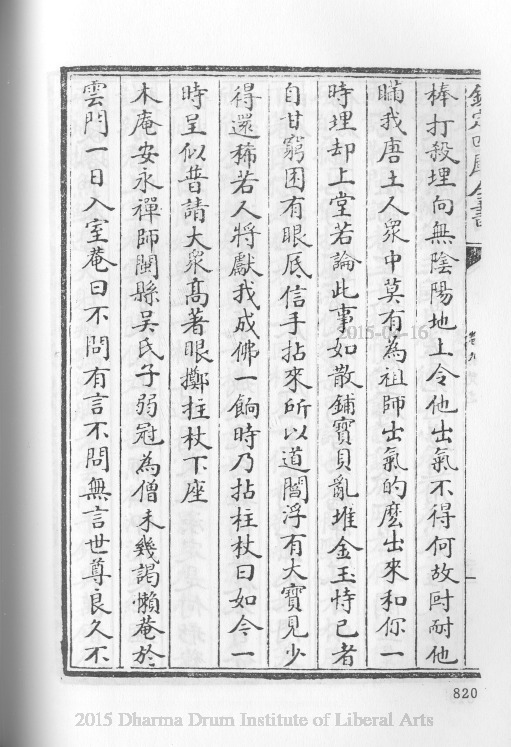 欽定四庫全書
卷九
棒打殺埋向無陰陽地上令他出氣不得何故叵耐他
瞞我唐土人眾中莫有為祖師出氣的麼出來和你一
時埋却上堂若論此事如散鋪寶貝亂堆金玉恃已者
自甘窮困有眼底信手拈來所以道閻浮有大寶見少
得還稀若人將獻我成佛一餉時乃拈柱杖曰如今一
時呈似普請大眾髙著眼擲拄杖下座
木庵安永禪師閩縣吳氏子弱冠為僧未幾謁懶菴於
雲門一日入室菴曰不問有言不問無言世尊良久不
820
2015 Dharma Drum Institute of Liberal Arts